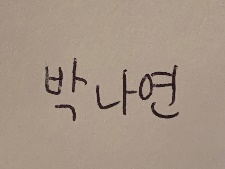 박나연